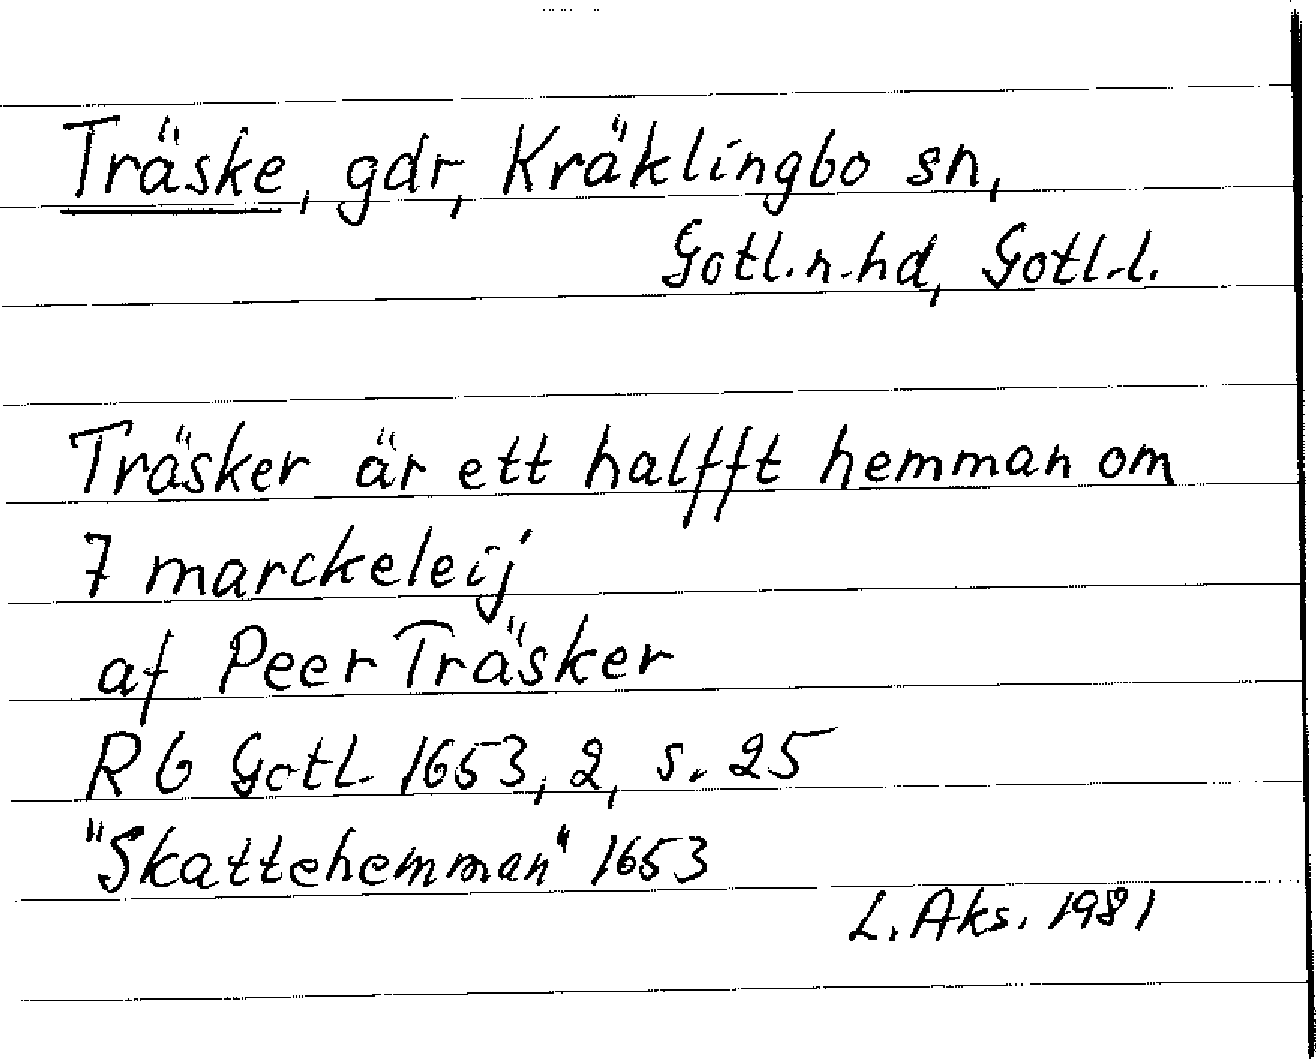 Träske, gdr, Kräklingbo sn,
Gotl.n.hd, Gotl.l.
Träsker är ett halfft hemman om
7 marckeleij
af Peer Träsker
RG Gotl. 1653, 2, s. 25
"Skattehemman" 1653
L. Aks. 1981